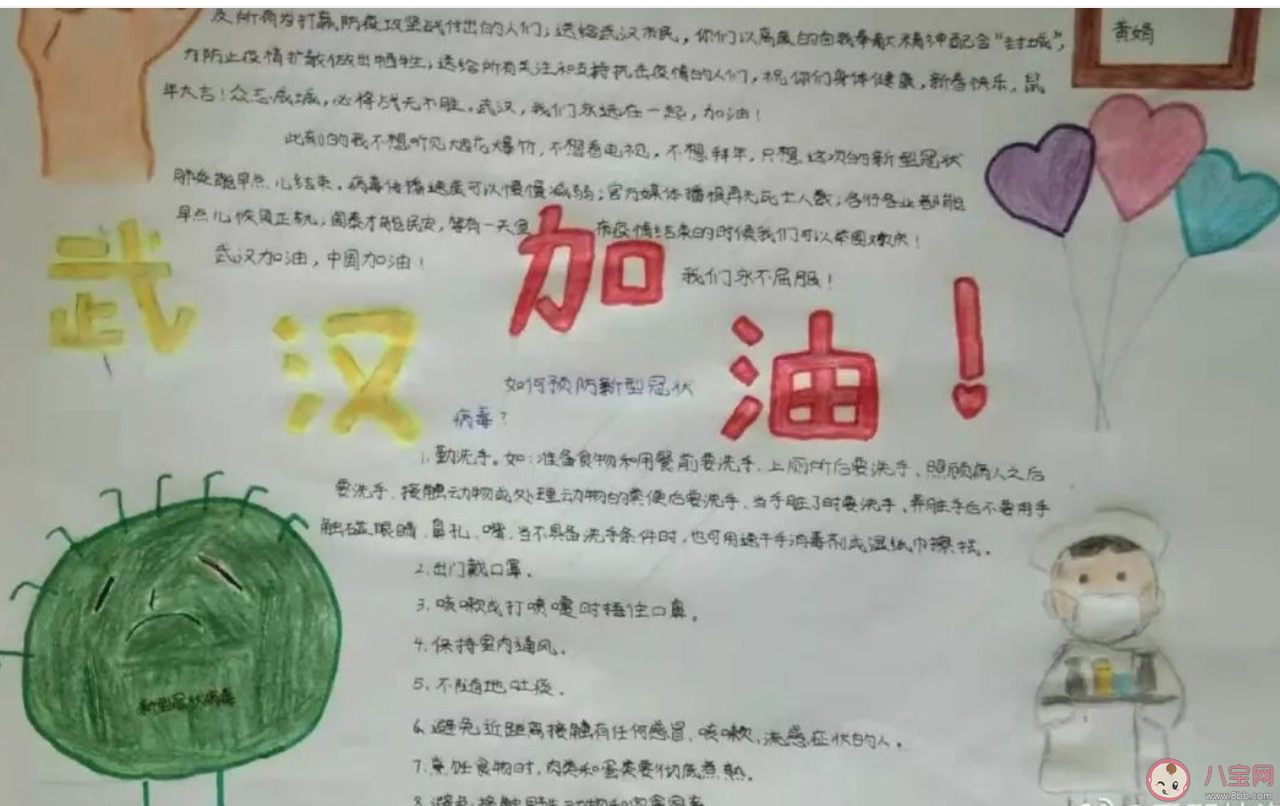 及所有为打赢防疫攻坚战付出的人们；送给武汉市民，你们以高度的自我奉献精神配合“封城”，
为防止疫情扩散做出牺牲；送给所有关注和支持抗击疫情的人们，祝你们身体健康，新春快乐，鼠
年大吉！众志成城，必将战无不胜。武汉，我们永远在一起，加油！
此刻的我不想听见烟花爆竹，不想看电视，不想拜年，只想这次的新型冠状
肺炎能早点儿结束。病毒传播速度可以慢慢减弱；官方媒体播报再无死亡人数；各行各业都能
早点儿恢复正轨；国泰才能民安，等有一天
疫情结束的时候我们可以举国欢庆！
武汉加油，中国加油！
我们永不屈服！
黄娟
武汉加油！
如何预防新型冠状
病毒？
1.勤洗手。如：准备食物和用餐前要洗手、上厕所后要洗手、照顾病人之后
要洗手、接触动物或处理动物的粪便后要洗手、当手脏了时要洗手、弄脏手后不要用手
触碰眼睛、鼻孔、嘴，当不具备洗手条件时，也可用速干手消毒剂或湿纸巾擦拭。
2.出门戴口罩。
3.咳嗽或打喷嚏时捂住口鼻。
4.保持室内通风。
5.不随地吐痰。
6.避免近距离接触有任何感冒、咳嗽、流感症状的人。
7.烹饪食物时，肉类和蛋类要彻底煮熟。
8.避免接触野生动物和
新型冠状病毒
八宝网
www.8bb.com